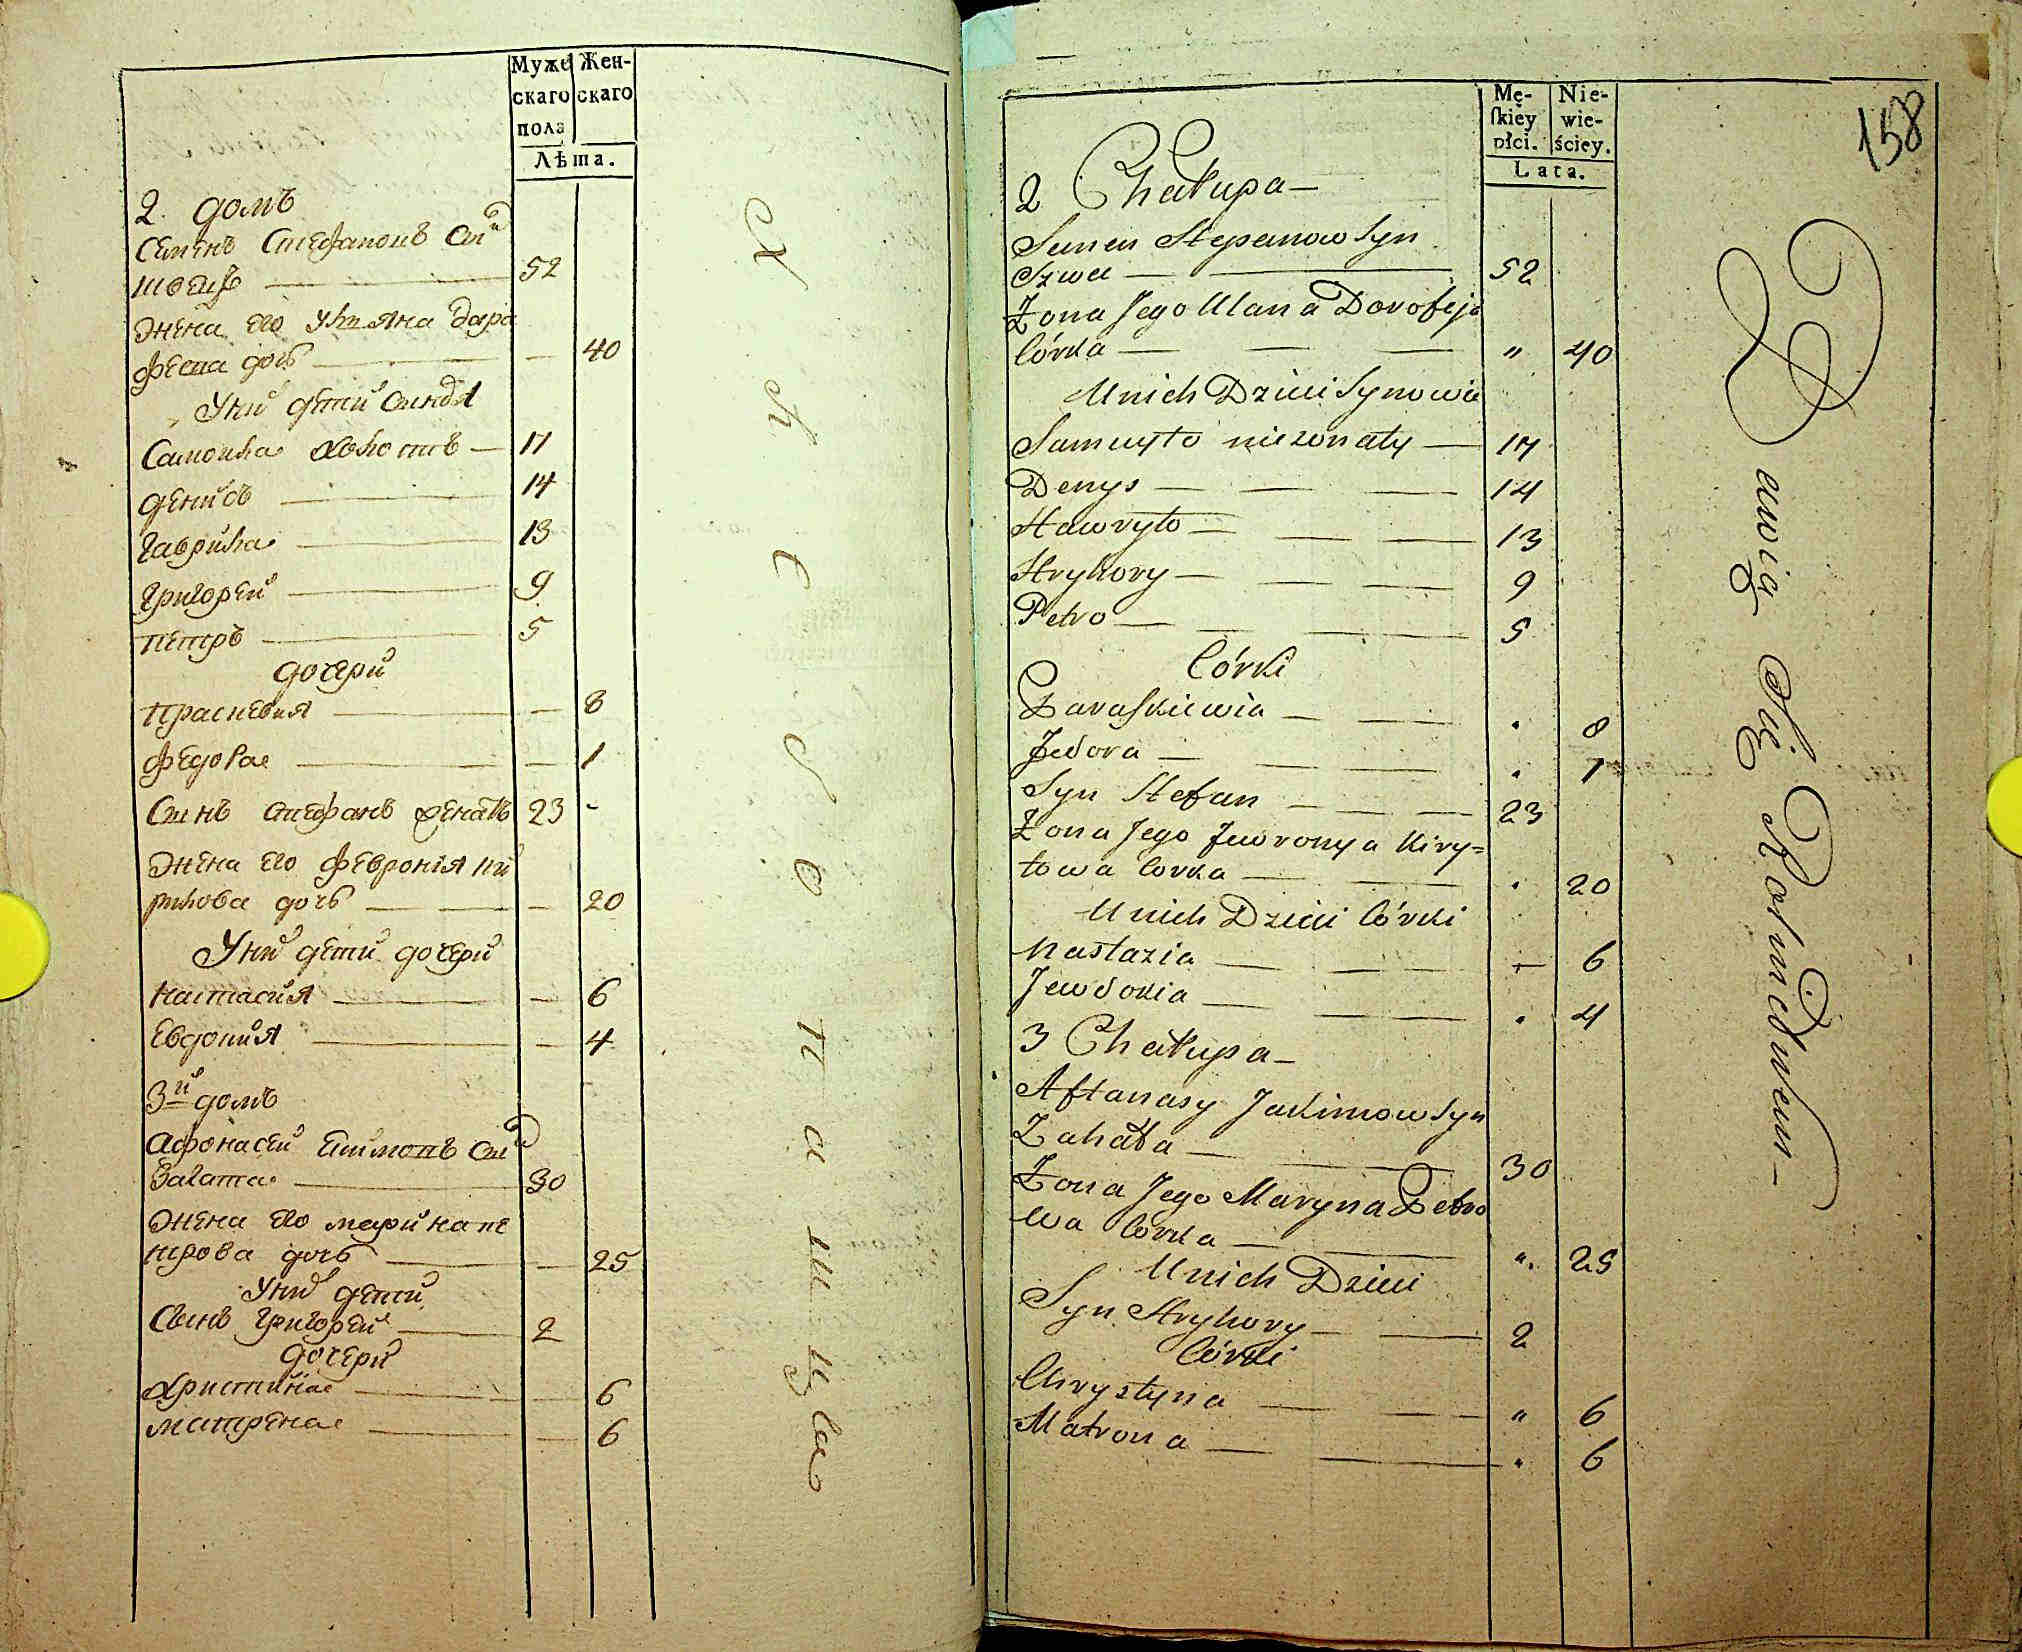 Муже
скаго
пола
Жен-
скаго
Лѣта.
2. домъ
Семенъ Стефановъ Синъ
швецъ 52
Жена его Ульяна Доро
феева дочь 40
У нихъ дети синовя
Самойла холостъ 17
Денисъ 14
Гаврила 13
Григорей 9
Петръ 5
Дочери
Прасковия 8
Федора 1
Синъ Стефанъ женатъ 23
Жена его Феврония Ки
рилова дочь 20
У нихъ дети дочери
Настасия 6
Евдокия 4
3й домъ
Афонасей Якимовъ Синъ
Загата 30
Жена его Марина Пе
трова дочь 25
У нихъ дети
Синъ Григорей 2
Дочери
Христина 6
Матрена 6
158
Mę-
skiey
płci.
Nie-
wie-
ściey.
Lata.
2 Chałupa
Semen Stepanow Syn
Szwec 52
Żona Jego Ulana Dorofeja
Córka " 40
U nich Dzieci Synowie
Samuyło nieżonaty 17
Denys 14
Hawryło 13
Hryhory 9
Petro 5
Córki
Paraskiewia 8
Fedora 1
Syn Stefan 23
Żona Jego Jewronya Kiry=
łowa Corka 20
U nich Dzieci Córki
Nastazia 6
Jewdokia 4
3 Chałupa
Aftanasy Jakimow Syn
Zahata 30
Żona Jego Maryna Petro
wa Córka " 25
U nich Dzieci
Syn Hryhory 2
Córki
Chrystyna " 6
Matrona 6